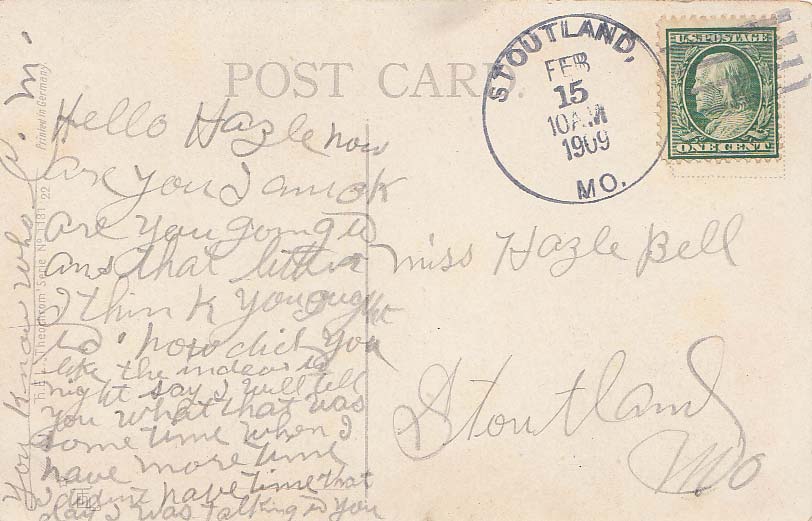 POST CARD.
STOUTLAND,
FEB
15
10 AM
1909
MO.
U.S. POSTAGE
ONE CENT
Hello Hazle how
are you I am ok
are you going to
ans that letter
I think you ought
to. how did you
like the
night say I will tell
you what that was
some time when I
have more time
I didint have time that
day I was talking to you
You know who.
Miss Hazle Bell
Stoutland
Mo
Printed in Germany.
Theochrom Serie No 1181 22